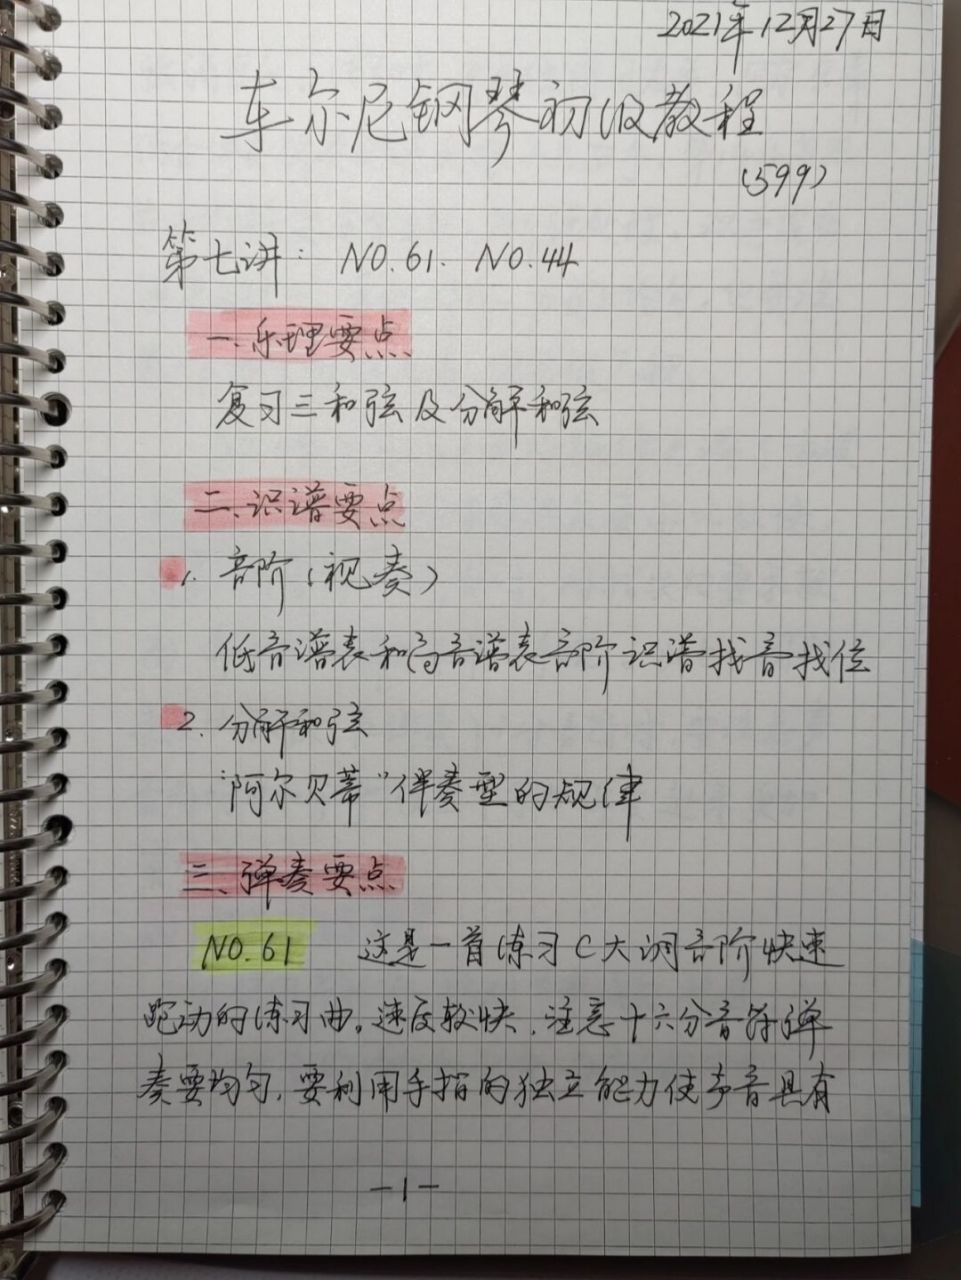 2021年12月27日
车尔尼钢琴初级教程
(599)
第七讲: NO.61. NO.44
一.乐理要点
复习三和弦及分解和弦
二、识谱要点
1. 音阶(视奏)
低音谱表和高音谱表音阶识谱找音找位
2. 分解和弦
“阿尔贝蒂”伴奏型的规律
三、弹奏要点
NO.61 这是一首练习C大调音阶快速
跑动的练习曲。速度较快,注意十六分音符弹
奏要均匀,要利用手指的独立能力使声音具有
-1-